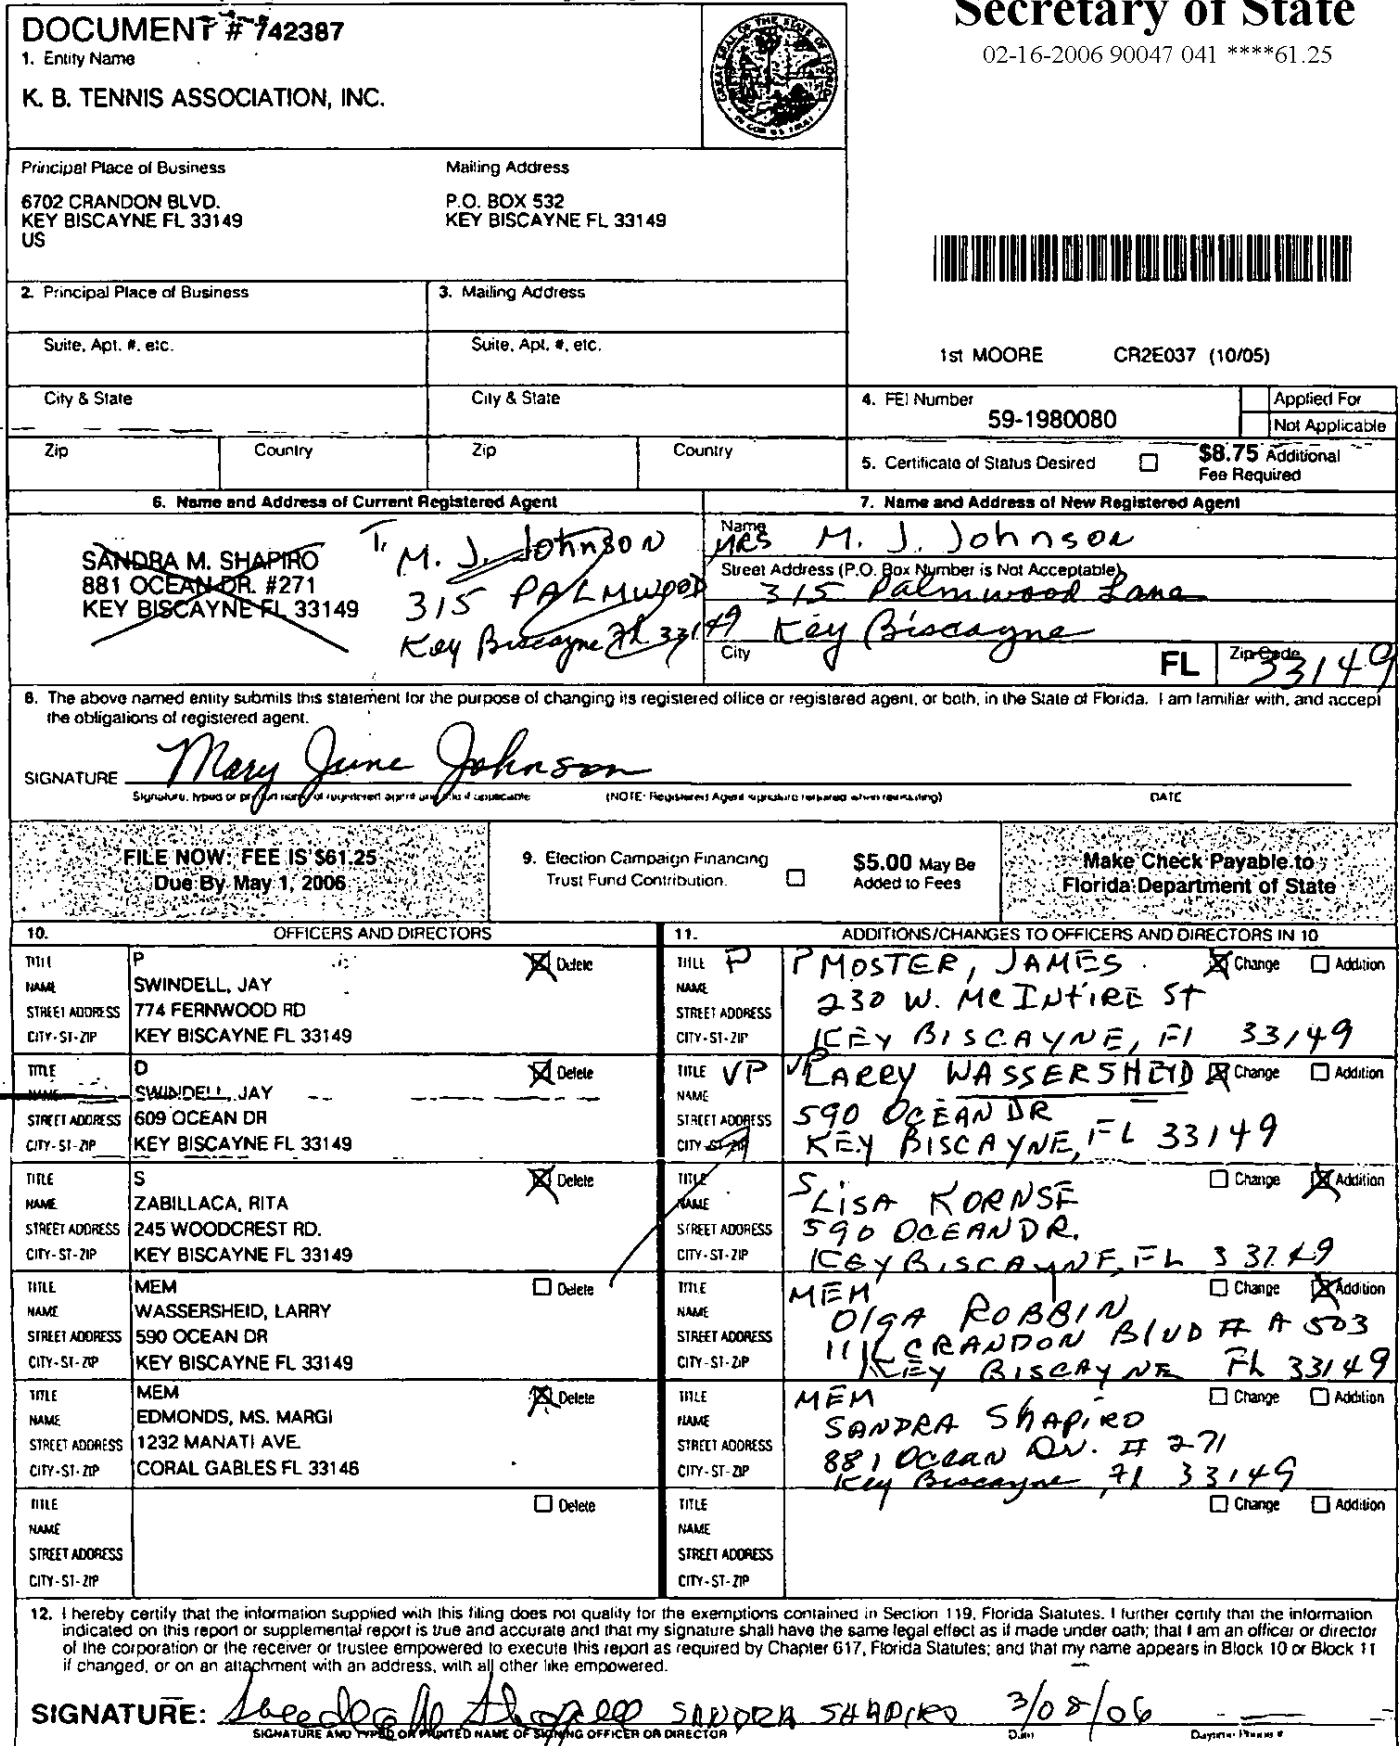 Secretary of State
02-16-2006 90047 041 ****61.25
DOCUMENT # 742387
1. Entity Name
K. B. TENNIS ASSOCIATION, INC.
Principal Place of Business
6702 CRANDON BLVD.
KEY BISCAYNE FL 33149
US
Mailing Address
P.O. BOX 532
KEY BISCAYNE FL 33149
2. Principal Place of Business
3. Mailing Address
Suite, Apt. #, etc.
Suite, Apt. #, etc.
1st MOORE CR2E037 (10/05)
City & State
City & State
4. FEI Number
59-1980080
Applied For
Not Applicable
Zip Country
Zip Country
5. Certificate of Status Desired
$8.75 Additional
Fee Required
6. Name and Address of Current Registered Agent
SANDRA M. SHAPIRO
881 OCEAN DR. #271
KEY BISCAYNE FL 33149
M. J. Johnson
315 PALMWOOD
Key Biscayne Fl 33149
7. Name and Address of New Registered Agent
Name
MRS M. J. Johnson
Street Address (P.O. Box Number is Not Acceptable)
315 Palmwood Lane
Key Biscayne
City
FL
Zip Code
33149
8. The above named entity submits this statement for the purpose of changing its registered office or registered agent, or both, in the State of Florida. I am familiar with, and accept
the obligations of registered agent.
SIGNATURE Mary June Johnson
Signature, typed or printed name of registered agent and title if applicable (NOTE: Registered Agent signature required when reinstating) DATE
FILE NOW: FEE IS $61.25
Due By May 1, 2006
9. Election Campaign Financing
Trust Fund Contribution.
$5.00 May Be
Added to Fees
Make Check Payable to
Florida Department of State
10. OFFICERS AND DIRECTORS
11. ADDITIONS/CHANGES TO OFFICERS AND DIRECTORS IN 10
TITLE P Delete
NAME SWINDELL, JAY
STREET ADDRESS 774 FERNWOOD RD
CITY-ST-ZIP KEY BISCAYNE FL 33149
TITLE P P MOSTER, JAMES Change Addition
NAME
230 W. McINtIRE St
STREET ADDRESS
CITY-ST-ZIP KEY BISCAYNE, Fl 33149
TITLE D Delete
NAME SWINDELL, JAY
STREET ADDRESS 609 OCEAN DR
CITY-ST-ZIP KEY BISCAYNE FL 33149
TITLE VP VP LARRY WASSERSHEID Change Addition
NAME
STREET ADDRESS 590 OCEAN DR
CITY-ST-ZIP KEY BISCAYNE, FL 33149
TITLE S Delete
NAME ZABILLACA, RITA
STREET ADDRESS 245 WOODCREST RD.
CITY-ST-ZIP KEY BISCAYNE FL 33149
TITLE S Change Addition
NAME LISA KORNSE
STREET ADDRESS 590 OCEAN DR.
CITY-ST-ZIP KEY BISCAYNE, FL 33149
TITLE MEM Delete
NAME WASSERSHEID, LARRY
STREET ADDRESS 590 OCEAN DR
CITY-ST-ZIP KEY BISCAYNE FL 33149
TITLE MEM Change Addition
NAME OlgA ROBBIN
STREET ADDRESS 1111 CRANDON BlVD # A 503
CITY-ST-ZIP KEY BISCAYNE FL 33149
TITLE MEM Delete
NAME EDMONDS, MS. MARGI
STREET ADDRESS 1232 MANATI AVE.
CITY-ST-ZIP CORAL GABLES FL 33146
TITLE MEM Change Addition
NAME SANDRA SHAPIRO
STREET ADDRESS 881 Ocean Dr. # 271
CITY-ST-ZIP Key Biscayne, Fl 33149
TITLE Delete
NAME
STREET ADDRESS
CITY-ST-ZIP
TITLE Change Addition
NAME
STREET ADDRESS
CITY-ST-ZIP
12. I hereby certify that the information supplied with this filing does not qualify for the exemptions contained in Section 119, Florida Statutes. I further certify that the information
indicated on this report or supplemental report is true and accurate and that my signature shall have the same legal effect as if made under oath; that I am an officer or director
of the corporation or the receiver or trustee empowered to execute this report as required by Chapter 617, Florida Statutes; and that my name appears in Block 10 or Block 11
if changed, or on an attachment with an address, with all other like empowered.
SIGNATURE: SANDRA SHAPIRO 3/08/06
SIGNATURE AND TYPED OR PRINTED NAME OF SIGNING OFFICER OR DIRECTOR Date Daytime Phone #